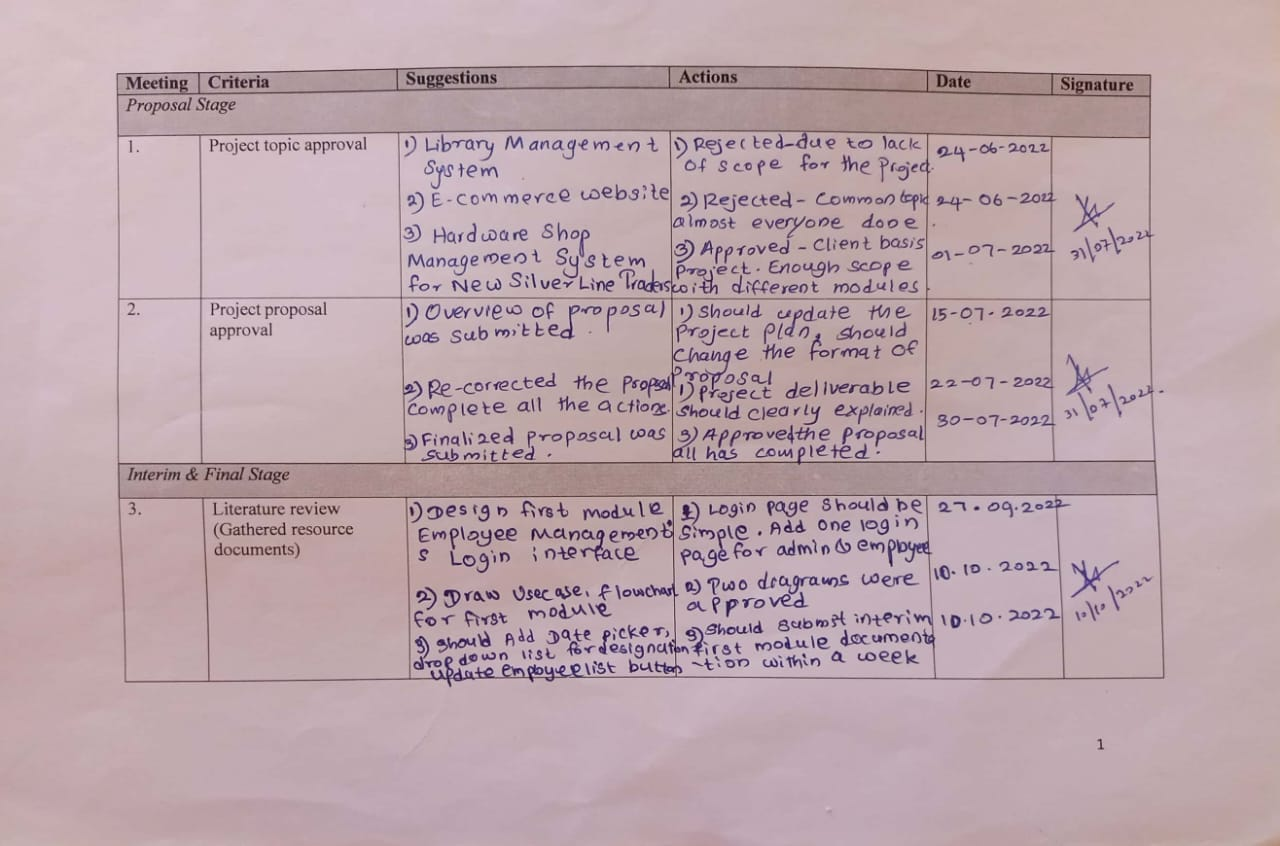 Meeting Criteria Suggestions Actions Date Signature
Proposal Stage
1. Project topic approval
1) Library Management
System
2) E-commerce website
3) Hardware Shop
Management System
for New Silver Line Traders
1) Rejected-due to lack
of scope for the Projec.
2) Rejected - Common topic
almost everyone done .
3) Approved - Client basis
Project. Enough scope
with different modules.
24-06-2022
24-06-2022
01-07-2022
31/07/2022
2. Project proposal
approval
1) Overview of proposal
was submitted .
2) Re-corrected the Proposal
Complete all the actions.
3) Finalized proposal was
submitted .
1) Should update the
Project plan, should
change the format of
Proposal
1) Project deliverable
should clearly explained.
3) Approved the Proposal
all has completed.
15-07-2022
22-07-2022
30-07-2022
31/07/2022.
Interim & Final Stage
3. Literature review
(Gathered resource
documents)
1) Design first module
Employee Management
& Login interface
2) Draw Usecase, flowchart
for first module
3) Should Add Date picker,
drop down list for designation
update employee list button
1) Login page should be
simple. Add one login
page for admin & employee
2) Two diagrams were
approved
3) Should submit interim
first module documenta
-tion within a week
27.09.2022
10.10.2022
10.10.2022
10/10/2022
1